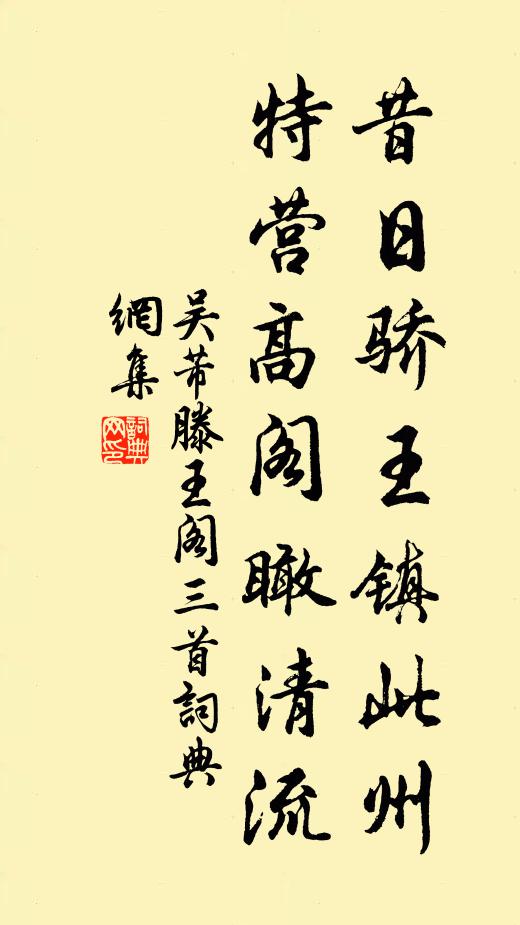 昔日骄王镇此州
特营高阁瞰清流
吴芾滕王阁三首詞典
網集
詞典
网印